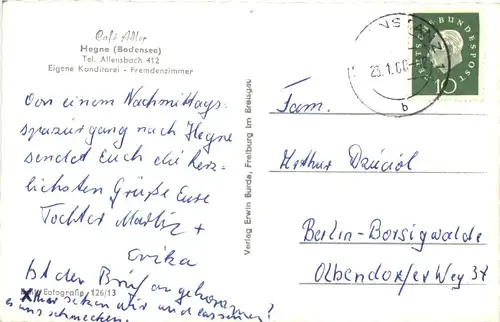 Café Adler
Hegne (Bodensee)
Tel. Allensbach 412
Eigene Konditorei - Fremdenzimmer
Von einem Nachmittags-
spaziergang nach Hegne
sendet Euch die herz-
lichsten Grüße Eure
Tochter Marliz +
Erika
Ist der Brief angekommen?
Fotografie 126/13
Hier setzen wir uns und lassen
es uns schmecken!
Verlag Erwin Burda, Freiburg im Breisgau
DEUTSCHE BUNDESPOST
10
b
Fam.
Arthur
Berlin-Borsigwalde
Olbendorfer Weg 37